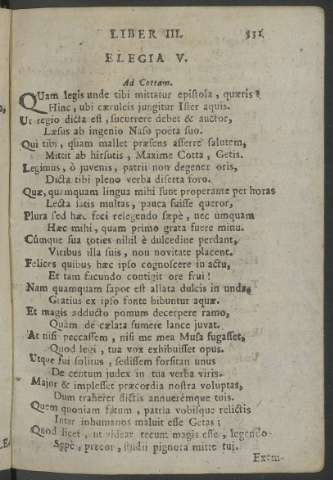 LIBER III. 331
ELEGIA V.
Ad Cottam.
QUam legis unde tibi mittatur epistola, quæris?
Hinc, ubi cæruleis jungitur Ister aquis.
Ut regio dicta est, succurrere debet & auctor,
Læsus ab ingenio Naso poëta suo.
Qui tibi, quam mallet præsens afferre salutem,
Mittit ab hirsutis, Maxime Cotta, Getis.
Legimus, ô juvenis, patrii non degener oris,
Dicta tibi pleno verba diserta foro.
Quæ, quamquam lingua mihi sunt properante per horas
Lecta satis multas, pauca fuisse queror,
Plura sed hæc feci relegendo sæpe, nec umquam
Hæc mihi, quam primo grata fuere minus.
Cùmque sua toties nihil è dulcedine perdant,
Viribus illa suis, non novitate placent.
Felices quibus hæc ipso cognoscere in actu,
Et tam facundo contigit ore frui!
Nam quamquam sapor est allata dulcis in unda,
Gratius ex ipso fonte bibuntur aquæ.
Et magis adducto pomum decerpere ramo,
Quàm de cælata sumere lance juvat.
At nisi peccassem, nisi me mea Musa fugasset,
Quod legi, tua vox exhibuisset opus.
Utque fui solitus, sedissem forsitan unus
De centum judex in tua verba viris.
Major & implesset præcordia nostra voluptas,
Dum traherer dictis annueremque tuis.
Quem quoniam fatum, patria vobisque relictis
Inter inhumanos maluit esse Getas;
Quod licet, ut videar tecum magis esse, legendo
Sæpe, precor, studii pignora mitte tui.
Exem-